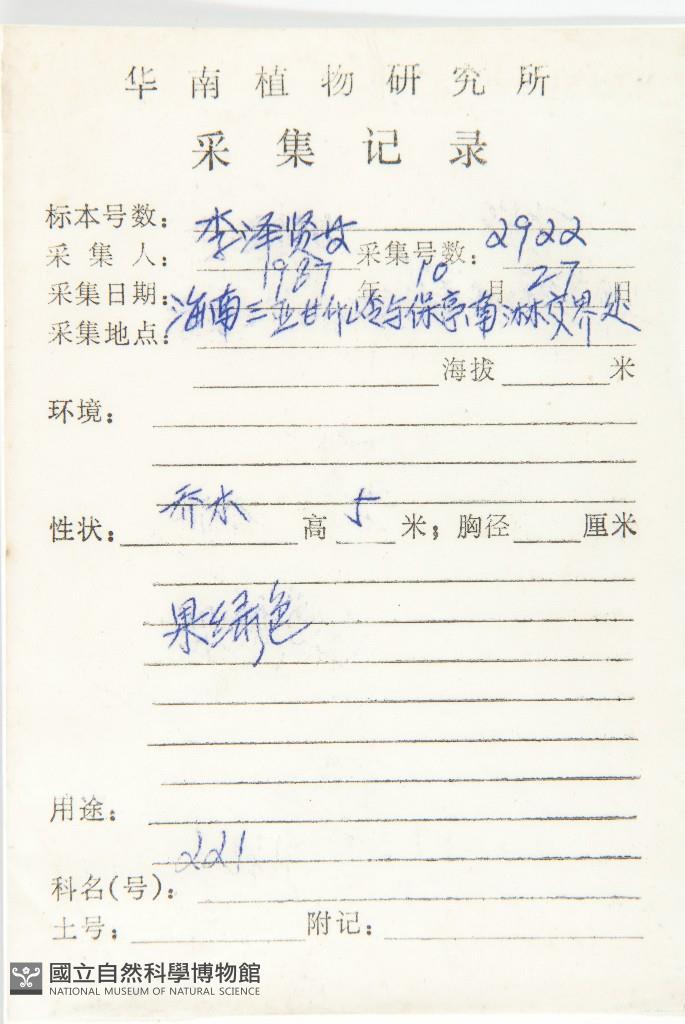 华南植物研究所
采集记录
标本号数：
采集人：李泽贤等 采集号数：2922
采集日期：1987年10月27日
采集地点：海南三亚甘什岭与保亭南淋交界处
海拔 米
环境：
性状：乔木 高 5 米；胸径 厘米
果绿色
用途：
科名(号)：221
土号： 附记：
國立自然科學博物館
NATIONAL MUSEUM OF NATURAL SCIENCE